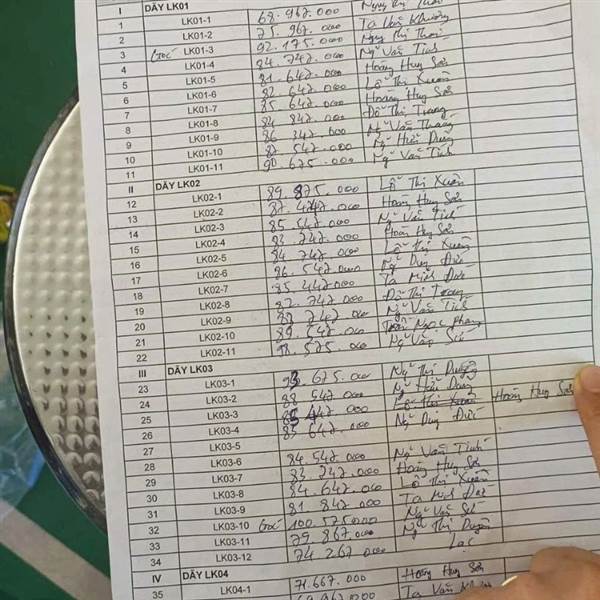 I DÃY LK01
1 LK01-1 68.967.000
2 LK01-2 75.967.000 Tạ Văn Khương
3 Góc LK01-3 92.175.000 Ng Thị Thơi
4 LK01-4 84.742.000 Ng Văn Tình
5 LK01-5 81.642.000 Hoàng Huy Sơn
6 LK01-6 82.642.000 Lỗ Thị Xuân
7 LK01-7 85.642.000 Hoàng Huy Sơn
8 LK01-8 84.842.000 Đỗ Thị Trang
9 LK01-9 86.342.000 Ng Văn Thắng
10 LK01-10 82.542.000 Ng Hữu Dũng
11 LK01-11 90.675.000 Ng Văn Tình
II DÃY LK02
12 LK02-1 89.875.000 Lỗ Thị Xuân
13 LK02-2 Hoàng Huy Sơn
14 LK02-3 85.542.000 Ng Văn Tình
15 LK02-4 83.742.000 Hoàng Huy Sơn
16 LK02-5 84.742.000 Lỗ Thị Xuân
17 LK02-6 86.542.000 Ng Duy Đức
18 LK02-7 85.442.000 Tạ Minh Đức
19 LK02-8 82.742.000 Đỗ Thị Trang
20 LK02-9 Ng Văn Tình
21 LK02-10 89.542.000 Trần Ngọc
22 LK02-11 Ng Văn
III DÃY LK03
23 LK03-1 93.675.000 Ng Thị Duyên
24 LK03-2 88.542.000 Ng Hữu Dũng
25 LK03-3 85.442.000 Lỗ Thị Xuân Hoàng Huy Sơn
26 LK03-4 85.642.000 Ng Duy Đức
27 LK03-5
28 LK03-6 84.542.000 Ng Văn Tình
29 LK03-7 83.742.000 Hoàng Huy Sơn
30 LK03-8 84.642.000 Lỗ Thị Xuân
31 LK03-9 81.842.000 Tạ Minh Đức
32 LK03-10 Góc 100.575.000 Ng Văn
33 LK03-11 79.867.000 Ng Thị Duyên
34 LK03-12 74.267.000 Lạc
IV DÃY LK04
35 LK04-1 71.667.000 Hoàng Huy Sơn
Tạ Văn